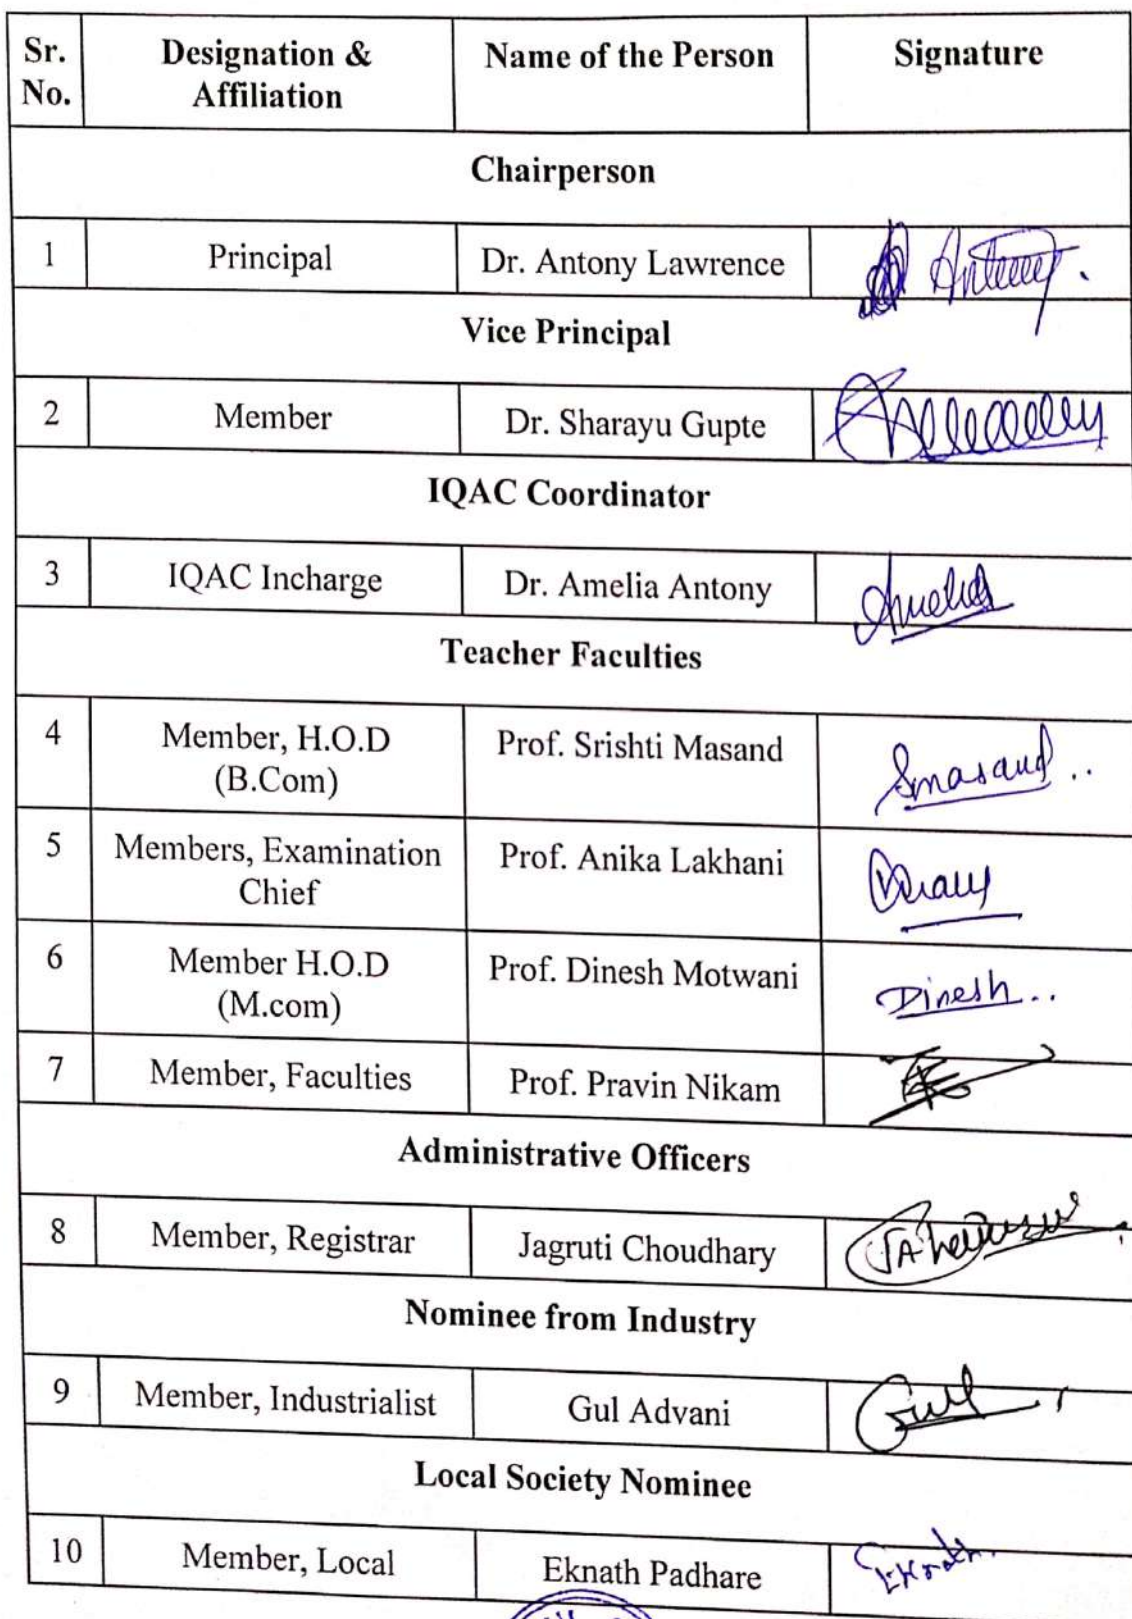 Sr. No. Designation & Affiliation Name of the Person Signature
Chairperson
1 Principal Dr. Antony Lawrence Antony.
Vice Principal
2 Member Dr. Sharayu Gupte
IQAC Coordinator
3 IQAC Incharge Dr. Amelia Antony Amelia
Teacher Faculties
4 Member, H.O.D (B.Com) Prof. Srishti Masand Smasand..
5 Members, Examination Chief Prof. Anika Lakhani
6 Member H.O.D (M.com) Prof. Dinesh Motwani Dinesh..
7 Member, Faculties Prof. Pravin Nikam
Administrative Officers
8 Member, Registrar Jagruti Choudhary
Nominee from Industry
9 Member, Industrialist Gul Advani Gul
Local Society Nominee
10 Member, Local Eknath Padhare Eknath.